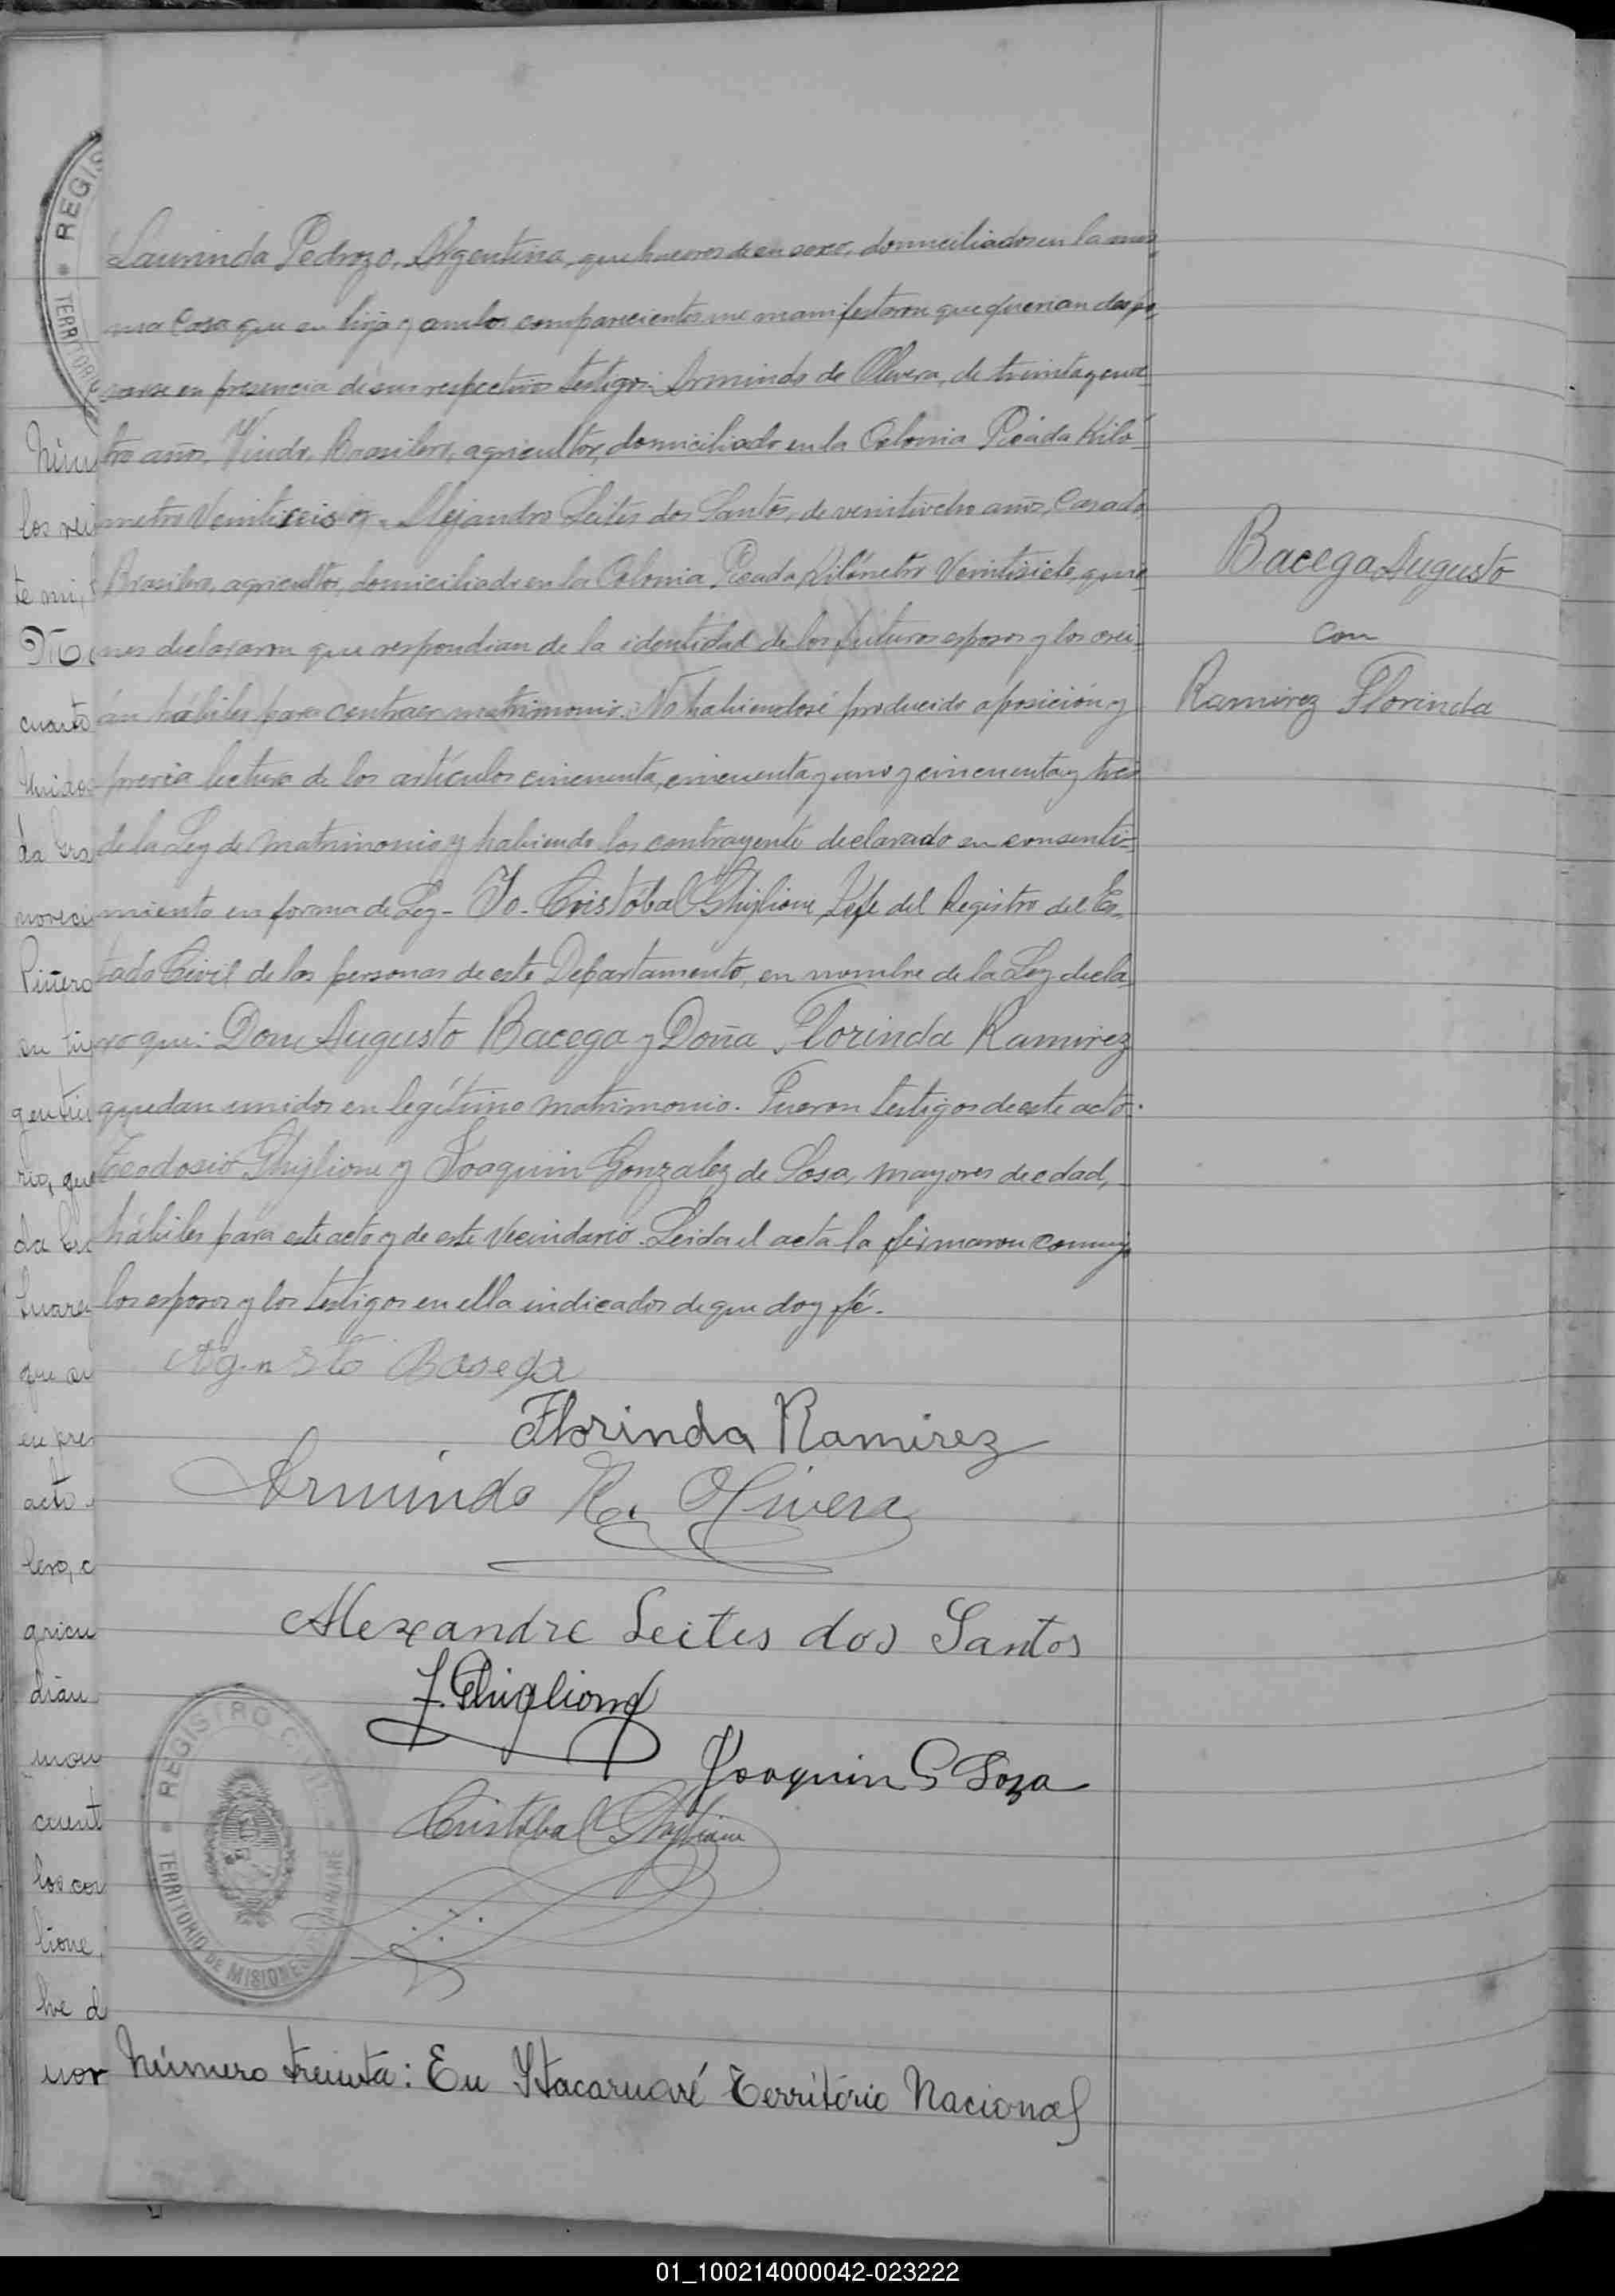 Laurinda Pedrozo, Argentina, quehaceres de su sexo, domiciliados en la mis
ma Casa que su hija y ambos comparecientes me manifestaron que querian despo
sarse en presencia de sus respectivos testigos: Armindo de Olivera, de treinta y cua
tro años, Viudo, Brasilero, agricultor, domiciliado en la Colonia Picada Kiló-
metro Veintiseis y Alejandro Leites dos Santos, de veintiocho años, Casado,
Brasilero, agricultor, domiciliado en la Colonia Picada Kilómetro Veintisiete, quie
nes declararon que respondian de la identidad de los futuros esposos y los crei-
án hábiles para contraer matrimonio. No habiendosé producido oposición y
previa lectura de los artículos cincuenta, cincuenta y uno y cincuenta y tres
de la Ley de Matrimonio y habiendo los contrayentes declarado su consenti-
miento en forma de Ley - Yo - Cristóbal Ghiglione, Jefe del Registro del Es-
tado Civil de las personas de este Departamento, en nombre de la Ley decla
ro que: Don Augusto Bacega y Doña Florinda Ramirez
quedan unidos en legítimo matrimonio. Fueron testigos de este acto:
Teodosio Ghiglione y Joaquin Gonzalez de Sosa, mayores de edad,
hábiles para este acto y de este Vecindario. Leida el acta la firmaron conmigo
los esposos y los testigos en ella indicados de que doy fé.
Agusto Basega
Florinda Ramirez
Armindo R. Olivera
Alexandre Leites dos Santos
Ghiglione
Joaquin G Soza
Cristóbal Ghiglione
REGISTRO CIVIL
TERRITORIO DE MISIONES
Número treinta: En Itacaruaré Território Nacional
Bacega Augusto
con
Ramirez Florinda
REGIS
TERRITORIO
los vei
te mi,
cuarto
da Gra
noveci
Piñero
que su
en pres
acto
lero, c
gricu
dian
mon
cuent
los con
lione,
bre d
nor
01_100214000042-023222